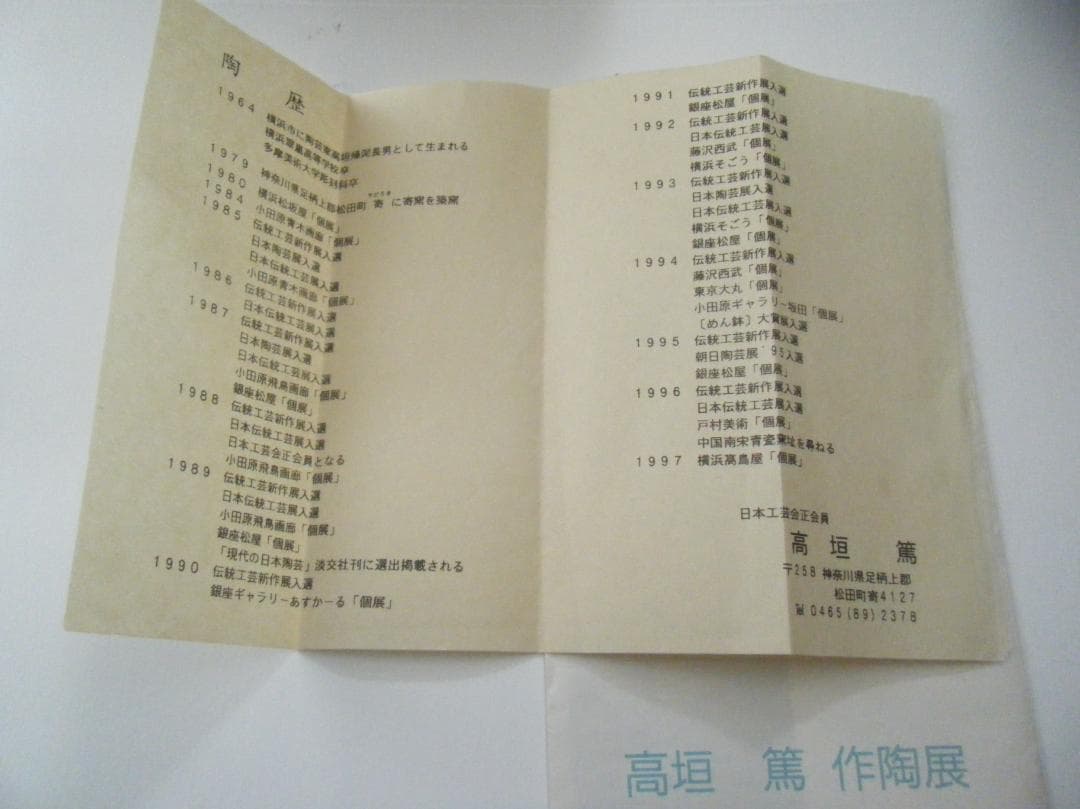 陶歴
1964 横浜市に陶芸家高垣 長男として生まれる
横浜 高等学校卒
多摩美術大学彫刻科卒
1979 神奈川県足柄上郡松田町寄に寄窯を築窯
1980 横浜松坂屋「個展」
1984 小田原青木画廊「個展」
1985 伝統工芸新作展入選
日本陶芸展入選
日本伝統工芸展入選
小田原青木画廊「個展」
1986 伝統工芸新作展入選
日本伝統工芸展入選
1987 伝統工芸新作展入選
日本陶芸展入選
日本伝統工芸展入選
小田原飛鳥画廊「個展」
銀座松屋「個展」
1988 伝統工芸新作展入選
日本伝統工芸展入選
日本工芸会正会員となる
小田原飛鳥画廊「個展」
1989 伝統工芸新作展入選
日本伝統工芸展入選
小田原飛鳥画廊「個展」
銀座松屋「個展」
「現代の日本陶芸」淡交社刊に選出掲載される
1990 伝統工芸新作展入選
銀座ギャラリーあすかーる「個展」
1991 伝統工芸新作展入選
銀座松屋「個展」
1992 伝統工芸新作展入選
日本伝統工芸展入選
藤沢西武「個展」
横浜そごう「個展」
1993 伝統工芸新作展入選
日本陶芸展入選
日本伝統工芸展入選
横浜そごう「個展」
銀座松屋「個展」
1994 伝統工芸新作展入選
藤沢西武「個展」
東京大丸「個展」
小田原ギャラリー坂田「個展」
〔めん鉢〕大賞展入選
1995 伝統工芸新作展入選
朝日陶芸展'95入選
銀座松屋「個展」
1996 伝統工芸新作展入選
日本伝統工芸展入選
戸村美術「個展」
中国南宋青瓷窯址を尋ねる
1997 横浜高島屋「個展」
日本工芸会正会員
高垣 篤
〒258 神奈川県足柄上郡
松田町寄4127
☎0465(89)2378
高垣 篤 作陶展